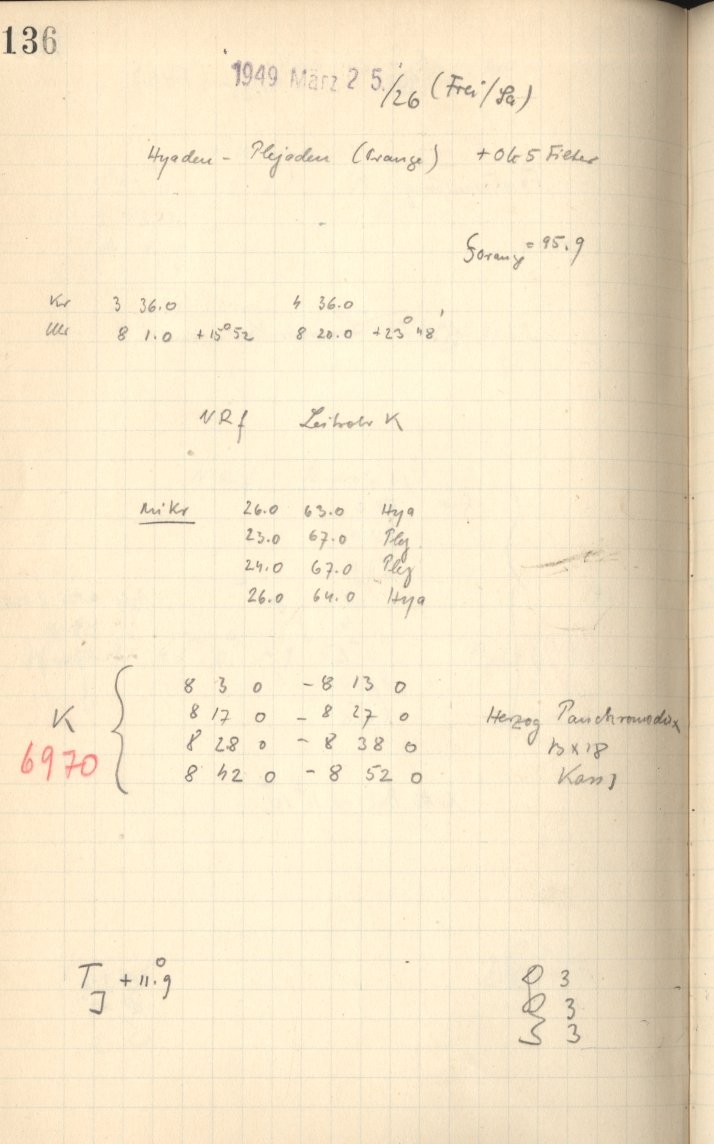 136
1949 März 25./26 (Frei/Sa)
Hyaden - Plejaden (Orange) + OG5 Filter
orange = 95.9
Kr 3 36.0 4 36.0
8 1.0 +15° 52 8 20.0 +23° 48'
NRf Leitrohr K
Mikr 26.0 63.0 Hya
23.0 67.0 Plej
24.0 67.0 Plej
26.0 64.0 Hya
8 3 0 - 8 13 0
K 8 17 0 - 8 27 0 Herzog Panchromodux
6970 8 28 0 - 8 38 0 13x18
8 42 0 - 8 52 0 Kass J
T J + 11.°9
Q 3
Q 3
S 3